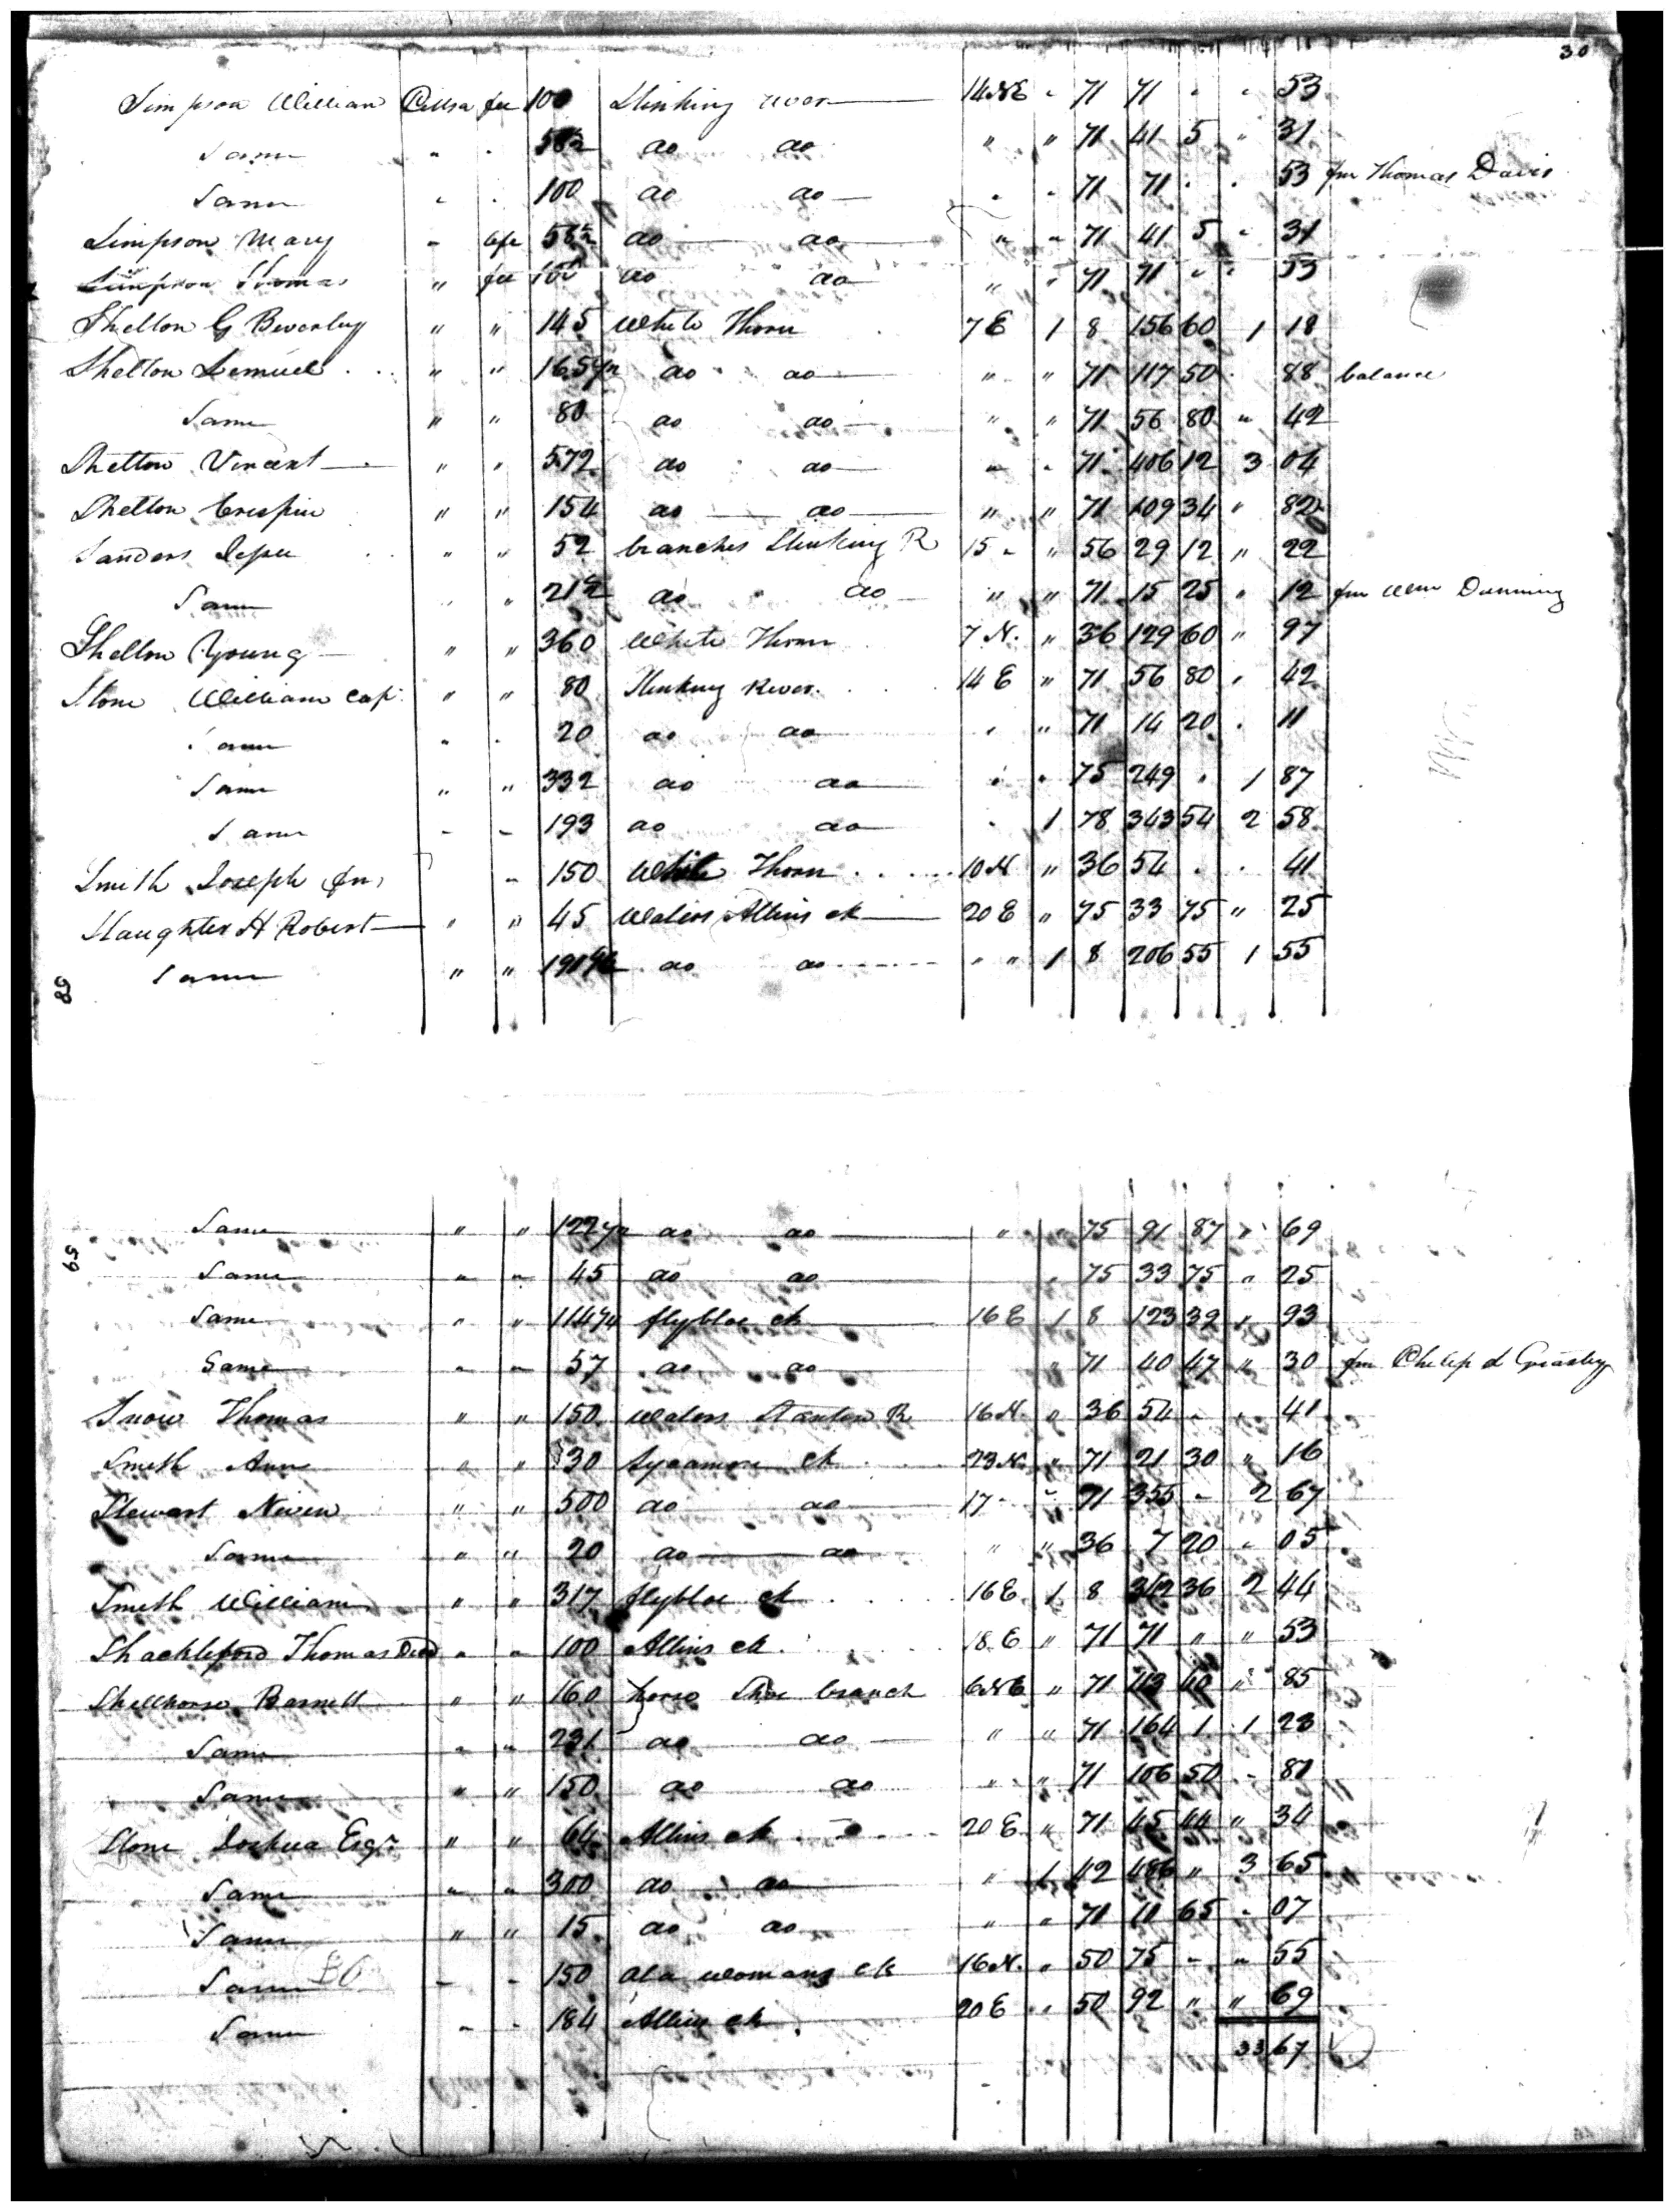 30
Simpson William Pittsa fee 100 Stinking river 14 NE " 71 71 " " 53
Same " " 58½ do do " " 71 41 5 " 31
Same " " 100 do do " " 71 71 " " 53 fm Thomas Davis
Simpson Mary " life 58½ do do " " 71 41 5 " 31
Simpson Thomas " fee 100 do do " " 71 71 " " 53
Shelton G Beverley " " 145 White Thorn 7 E 1 8 156 60 1 18
Shelton Lemuel " " 165½ do do " " 71 117 50 " 88 balance
Same " " 80 do do " " 71 56 80 " 42
Shelton Vincent " " 572 do do " " 71 406 12 3 04
Shelton Crispin " " 154 do do " " 71 109 34 " 82
Sanders Jesse " " 52 branches Stinking R 15 " " 56 29 12 " 22
Same " " 21½ do do " " 71 15 25 " 12 fm Wm Dunning
Shelton Young " " 360 White Thorn 7 N. " 36 129 60 " 97
Stone William Cap: " " 80 Stinking River 14 E " 71 56 80 " 42
Same " " 20 do do " " 71 14 20 " 11
Same " " 332 do do " " 75 249 " 1 87
Same " " 193 do do " 1 78 343 54 2 58
Smith Joseph Jn. " 150 White Thorn 10 N " 36 54 " " 41
Slaughter H Robert " " 45 Waters Allins ck 20 E " 75 33 75 " 25
Same " " 191¼ do do " " 1 8 206 55 1 55
58
59
Same " " 122½ do do " " 75 91 87 " 69
Same " " 45 do do " 75 33 75 " 25
Same " " 114¼ flybloe ck 16 E 1 8 123 39 " 93
Same " " 57 do do " 71 40 47 " 30 fm Philip L Grasty
Snow Thomas " " 150 Waters Stanton R 16 N. " 36 54 " " 41
Smith Ann " " 30 Sycamore ck 23 N. " 71 21 30 " 16
Stewart Niven " " 500 do do 17 " " 71 355 " 2 67
Same " " 20 do do " " 36 7 20 " 05
Smith William " " 317 flybloe ck 16 E 1 8 342 36 2 44
Shackleford Thomas Decd " " 100 Allins ck 18 E " 71 71 " " 53
Shellhorse Barnett " " 160 horse Shoe branch 6 NE " 71 113 60 " 85
Same " " 231 do do " " 71 164 1 1 23
Same " " 150 do do " " 71 106 50 " 80
Stone Joshua Esqr " " 64 Allins ck 20 E " 71 45 44 " 34
Same " " 300 do do " 1 62 486 " 3 65
Same " " 15 do do " " 71 10 65 " 07
Same " " 150 Old Womans ck 16 N. " 50 75 " " 55
Same " " 184 Allins ck 20 E " 50 92 " " 69
33 67